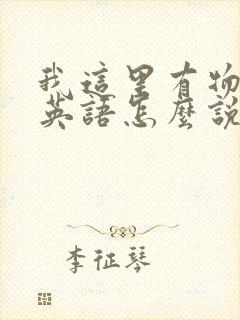 我這里有物
英語怎麼說
李征琴